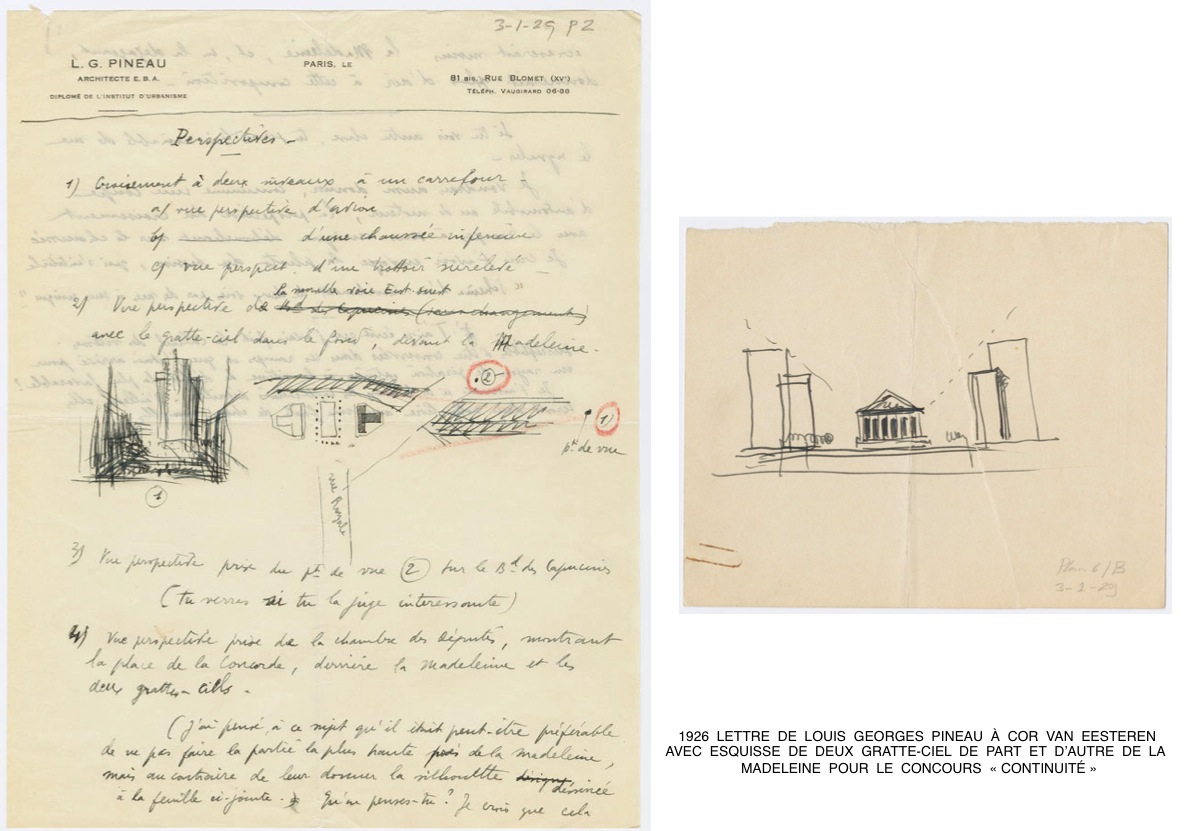 3-1-29 P2
L. G. PINEAU
ARCHITECTE E. B. A.
DIPLOMÉ DE L'INSTITUT D'URBANISME
PARIS, LE
81 BIS, RUE BLOMET (XVᵉ)
TÉLÉPH. VAUGIRARD 06-38
Perspectives -
1) Croisement à deux niveaux à un carrefour -
a) vue perspective d'avion
b) d'une chaussée inférieure
c) vue perspect. d'une trottoir surélevé
la nouvelle voie Est-ouest
2) Vue perspective de Bd des Capucines (sans changement)
avec le gratte-ciel dans le fond, devant la Madeleine.
2
1
pt de vue
1
rue Royale
3) Vue perspective prise du pt de vue 2 sur le Bd des Capucines
(tu verras si tu la juge interessante)
4) Vue perspective prise de la chambre des Députés, montrant
la place de la Concorde, derrière la Madeleine et les
deux gratte-ciels -
(J'ai pensé, à ce sujet qu'il était peut-être préférable
de ne pas faire la partie la plus haute près de la madeleine,
mais au contraire de leur donner la silhouette dessinée
à la feuille ci-jointe. Qu'en penses-tu? Je crois que cela
Plan 6/B
3-1-29
1926 LETTRE DE LOUIS GEORGES PINEAU À COR VAN EESTEREN
AVEC ESQUISSE DE DEUX GRATTE-CIEL DE PART ET D'AUTRE DE LA
MADELEINE POUR LE CONCOURS « CONTINUITÉ »